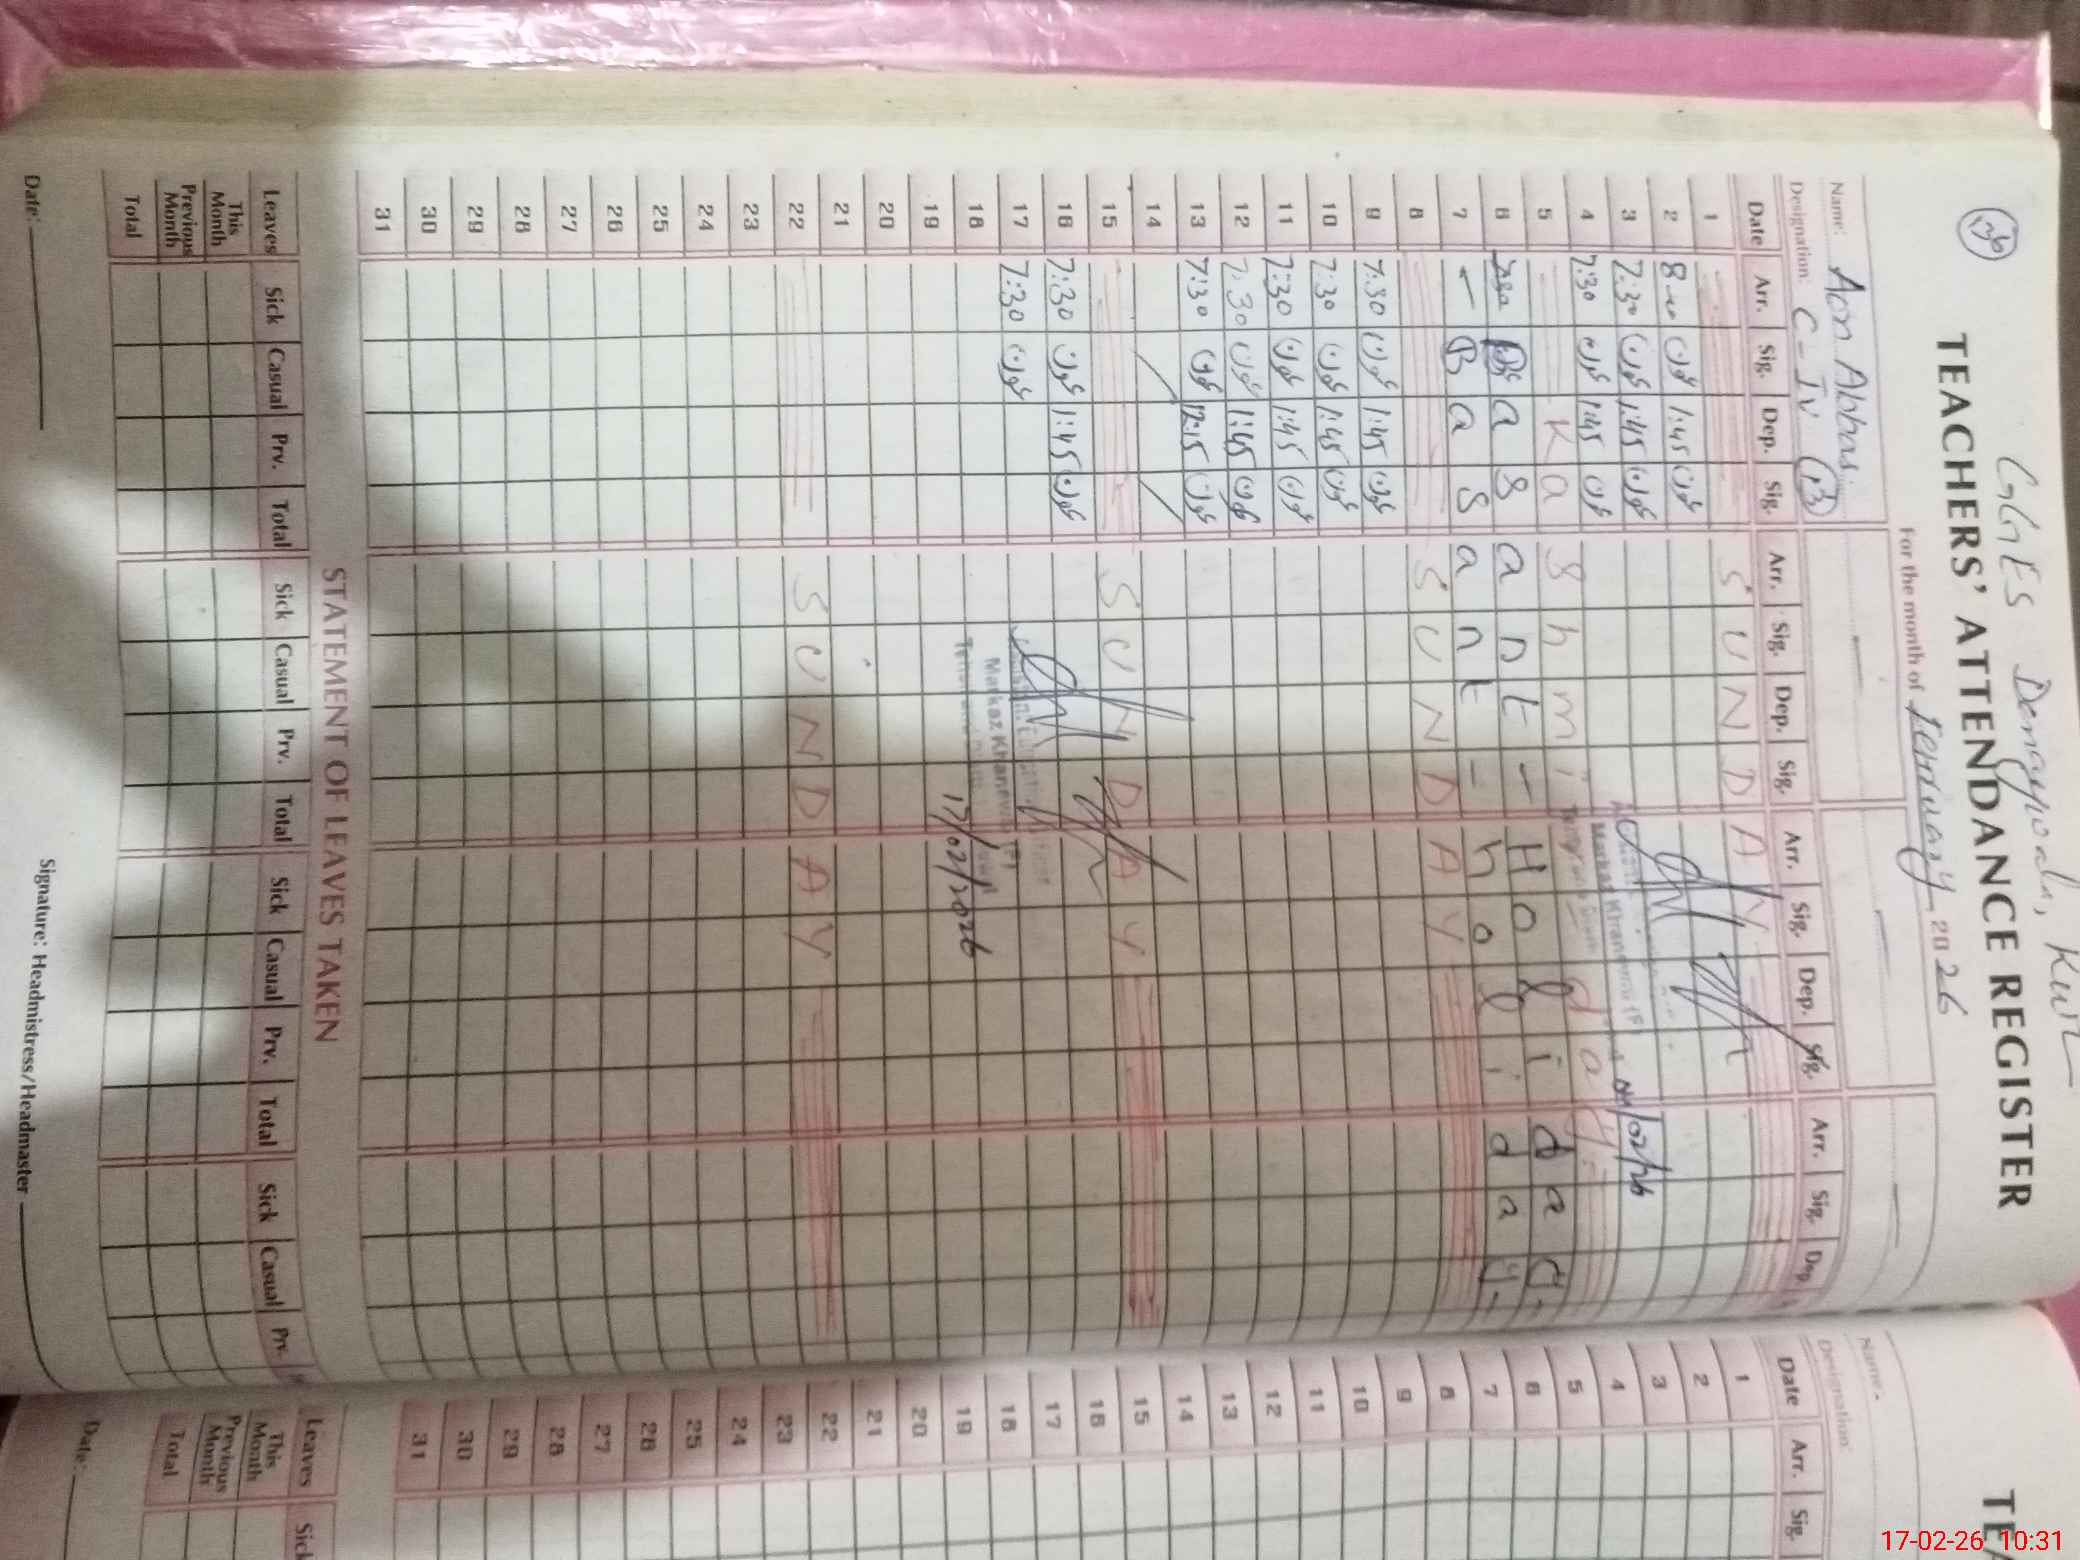 GGES Denayyal, Kur
TEACHERS' ATTENDANCE REGISTER
For the month of February 2026
Name: Aon Abbas
Designation: C-IV
Date Arr. Sig. Dep. Sig. Arr. Sig. Dep. Sig. Arr. Sig. Dep. Sig. Arr. Sig. Dep.
1 SUNDAY
2 8:00 عون 1:45 عون
3 7:30 عون 1:45 عون
4 7:30 عون 1:45 عون 04/02/26
5 Kashmir day
Markaz Khanewal (F)
6 Basant - Holiday -
7 - Basant - holiday -
8 SUNDAY
9 7:30 عون 1:45 عون
10 7:30 عون 1:45 عون
11 7:30 عون 1:45 عون
12 7:30 عون 1:45 عون
13 7:30 عون 12:15 عون
14
15 SUNDAY
16 7:30 عون 1:45 عون
17 7:30 عون
18 Markaz Khanewal (F)
19 17/02/2026
20
21
22 SUNDAY
23
24
25
26
27
28
29
30
31
STATEMENT OF LEAVES TAKEN
Leaves Sick Casual Prv. Total Sick Casual Prv. Total Sick Casual Prv. Total Sick Casual Prv.
This Month
Previous Month
Total
Date: Signature: Headmistress/Headmaster
TE
Name
Designation
Date Arr. Sig.
1
2
3
4
5
6
7
8
9
10
11
12
13
14
15
16
17
18
19
20
21
22
23
24
25
26
27
28
29
30
31
Leaves Sick
This Month
Previous Month
Total
Date:
17-02-26 10:31